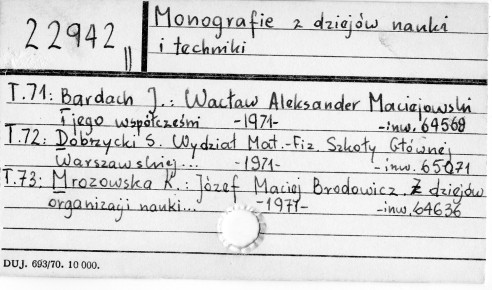 22942 II
Monografie z dziejów nauki
i techniki
T.71: Bardach J.: Wacław Aleksander Maciejowski
i jego współcześni -1971- -inw. 64569
T.72: Dobrzycki S. Wydział Mat.-Fiz. Szkoły Głównej
Warszawskiej... -1971- -inw. 65071
T.73: Mrozowska K.: Józef Maciej Brodowicz. Z dziejów
organizacji nauki... -1971- -inw. 64636
DUJ. 693/70. 10 000.